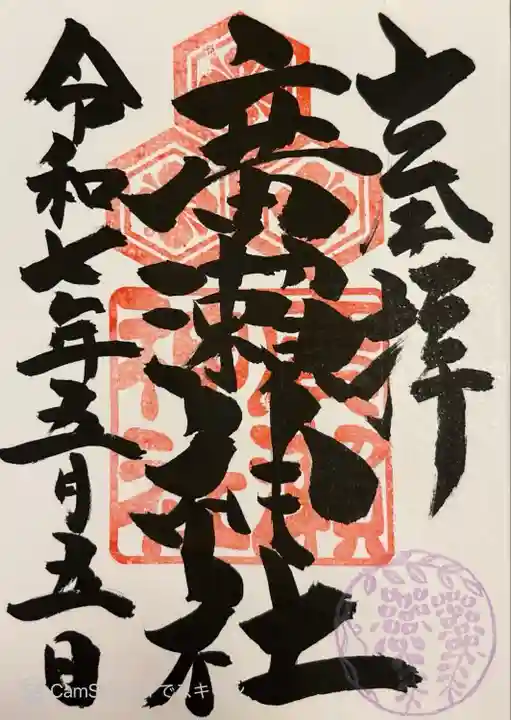 登拝
廣瀬神社
令和七年五月五日
CamS でスキャン